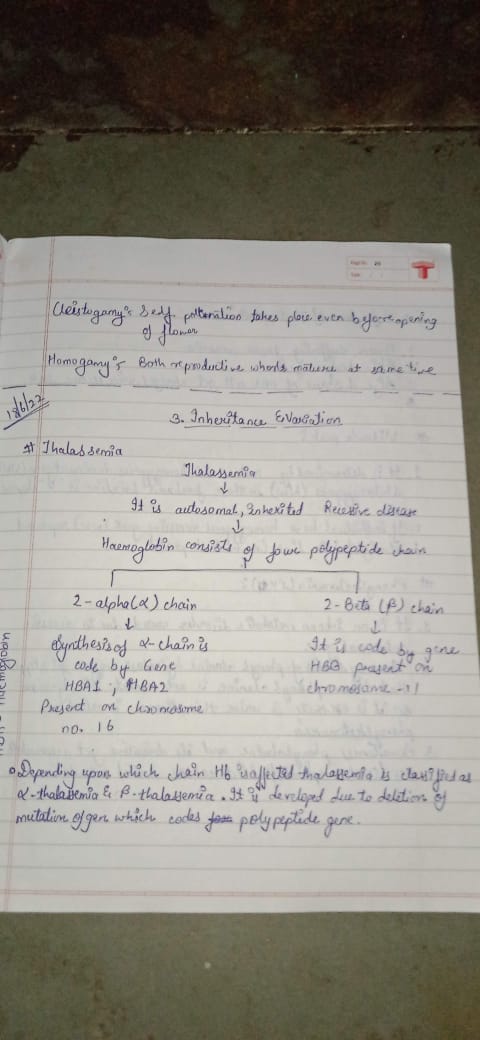 Page No. 20
Date
Cleistogamy:- Self pollination takes place even before opening
of flower
Homogamy:- Both reproductive whorls mature at same time
18/6/22
3. Inheritance & Variation
# Thalassemia
Thalassemia
↓
It is autosomal, Inherited Recessive disease
↓
Haemoglobin consists of four polypeptide chain
2-alpha(α) chain
↓
Synthesis of α-chain is
code by Gene
HBA1, HBA2
Present on chromosome
no. 16
2-Beta (β) chain
↓
It is code by gene
HBB present on
chromosome -11
Depending upon which chain Hb is affected thalassemia is classified as
α-thalassemia & β-thalassemia. It is developed due to deletion of
mutation of gen which codes polypeptide gene.